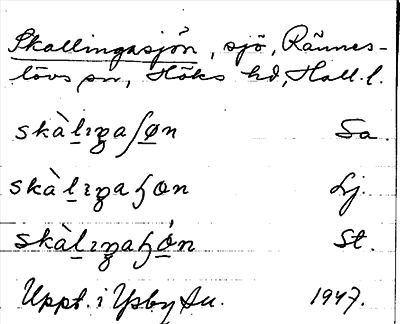 Skallingasjön, sjö, Rännes-
lövs sn, Höks hd, Hall. l.
skàlıŋaʃøn Sa.
skàlıŋaɧon Lj.
skàlıŋaɧón St.
Uppt. i Ysby sn. 1947.